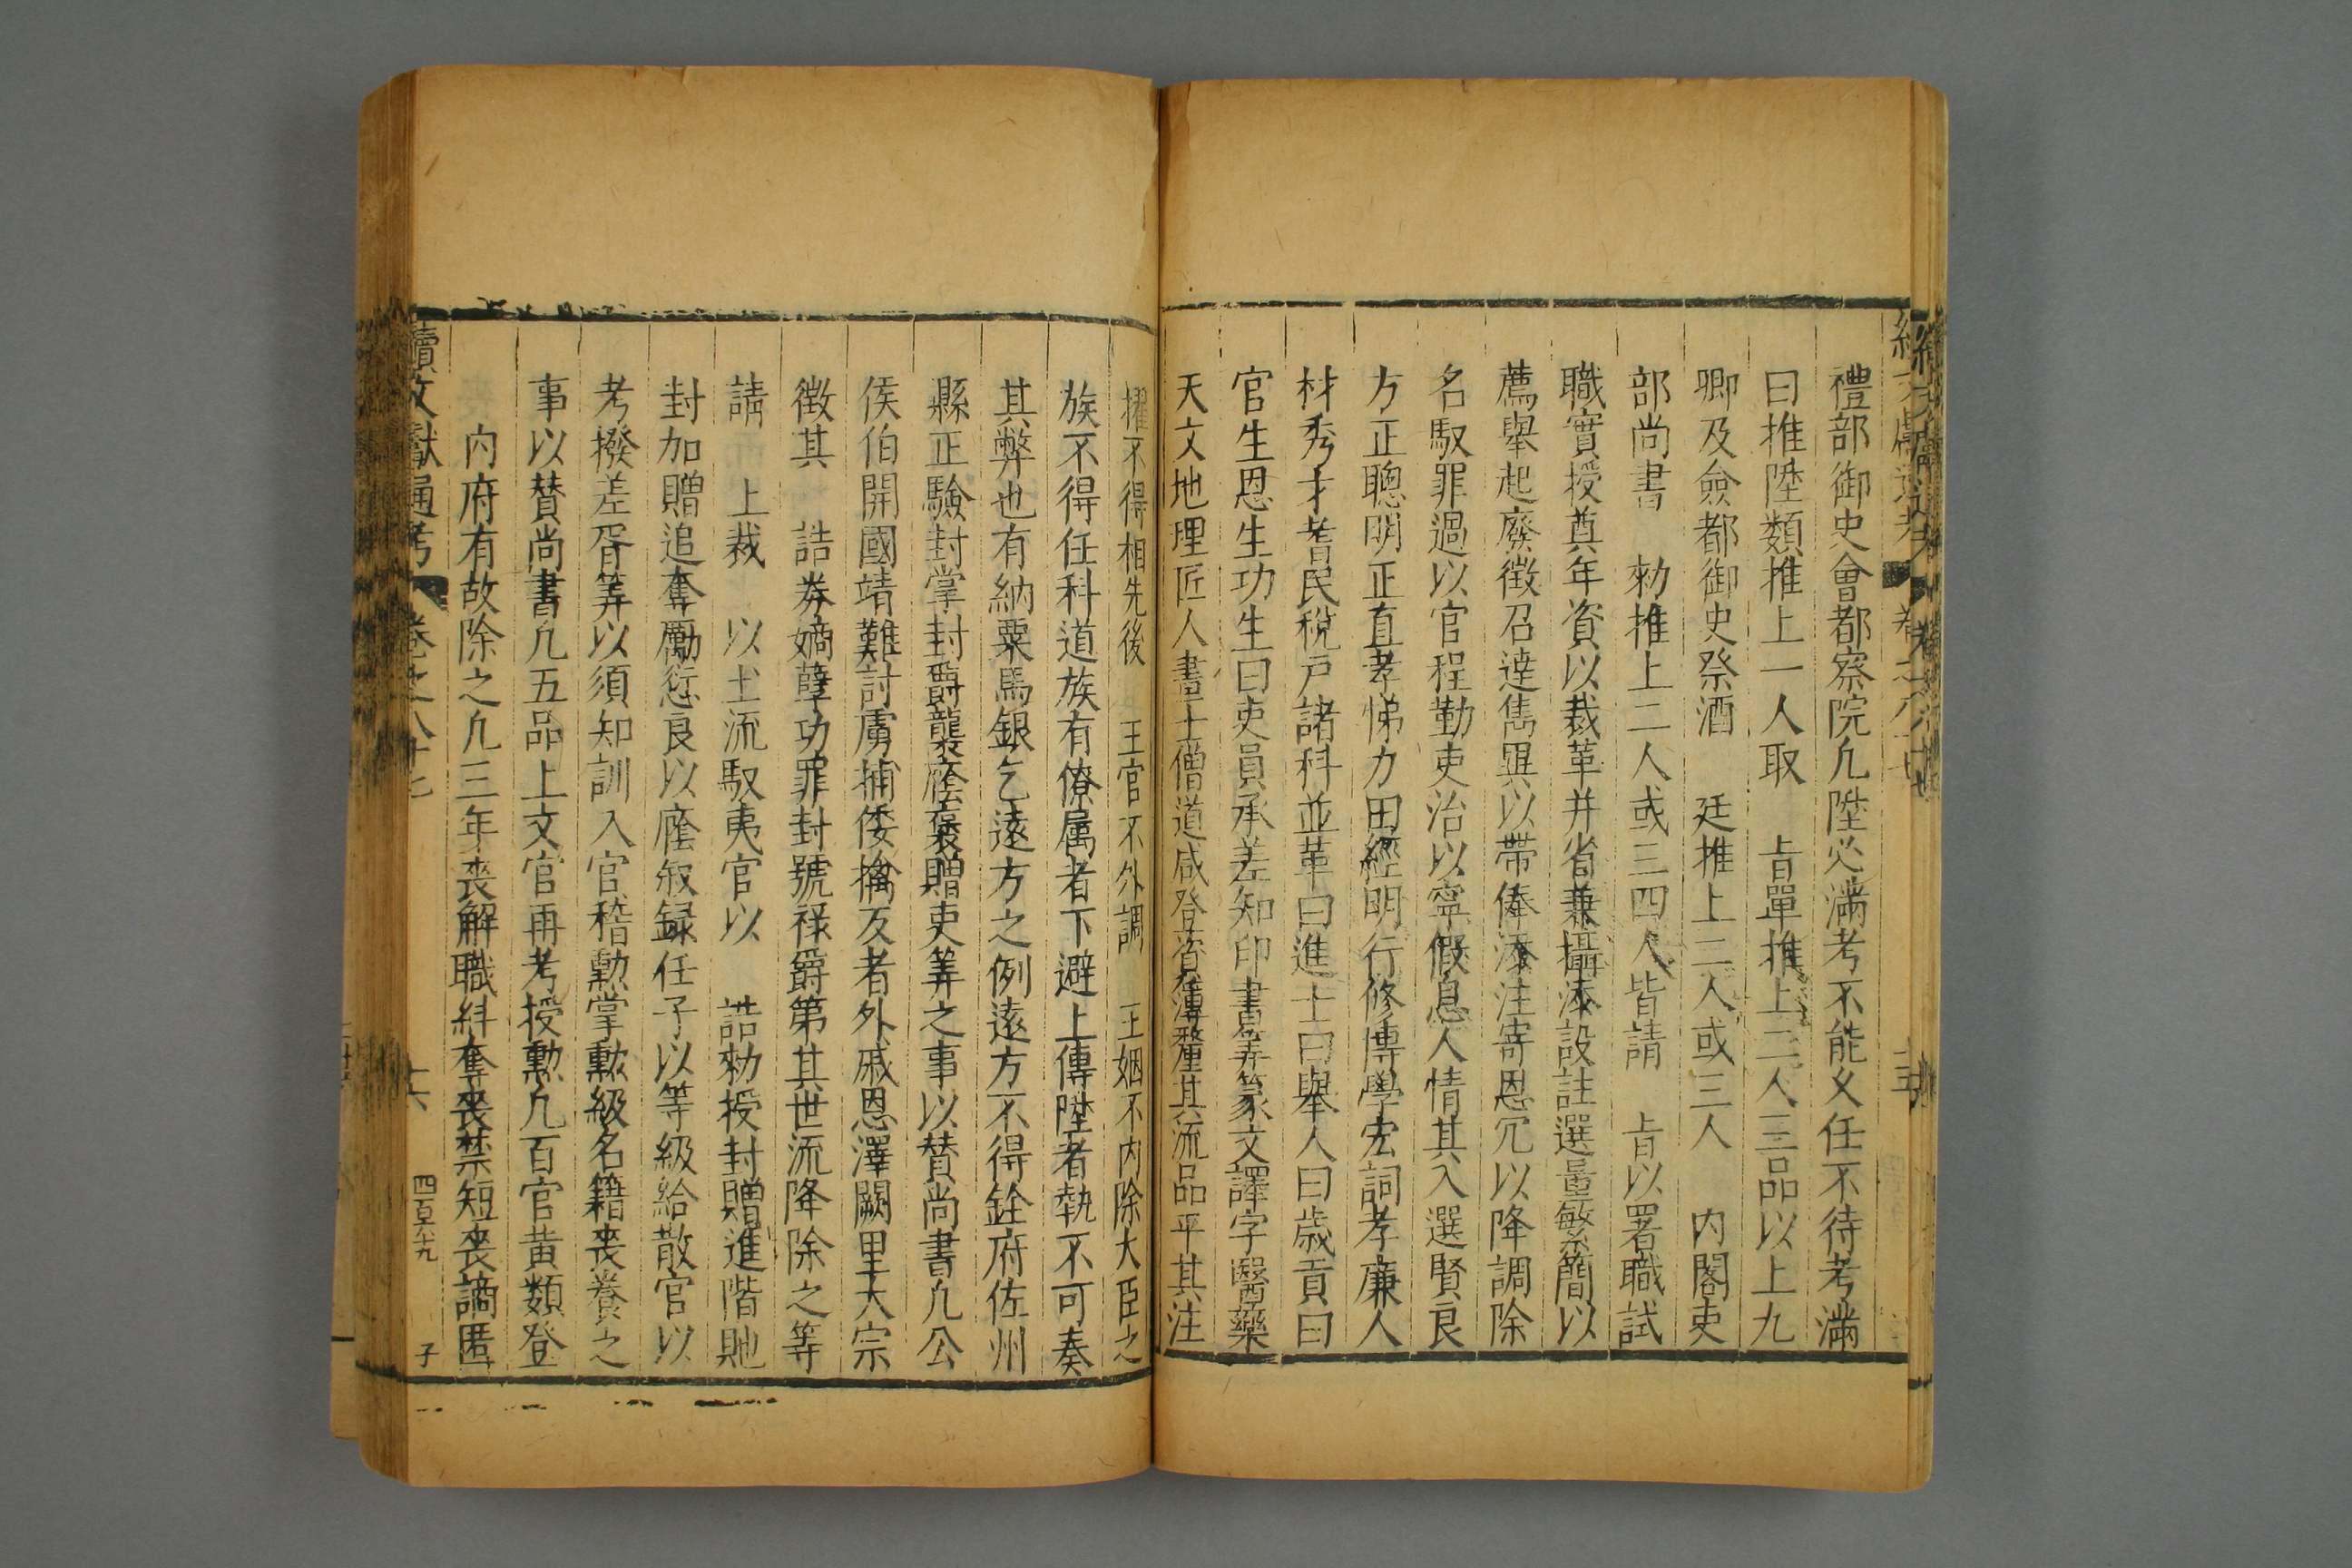 禮部御史會都察院凡陞必滿考不能乂任不待考滿
曰推陞類推上一人取 旨單推上二人三品以上九
卿及僉都御史祭酒 廷推上二人或三人 内閣吏
部尚書 勑推上二人或三四人皆請 旨以署職試
職實授奠年資以裁革并省兼攝添設註選量繁簡以
薦舉起廢徵召逹雋異以帶俸添注寄恩冗以降調除
名馭罪過以官程勤吏治以寧假息人情其入選賢良
方正聰明正直孝悌力田經明行修博學宏詞孝廉人
材秀才耆民稅戶諸科並革曰進士曰舉人曰歲貢曰
官生恩生功生曰吏員承差知印書筭篆文譯字醫藥
天文地理匠人畫士僧道咸登資簿釐其流品平其注
擢不得相先後 王官不外調 王姻不内除大臣之
族不得任科道族有僚属者下避上傳陞者執不可奏
其弊也有納粟馬銀乞遠方之例遠方不得銓府佐州
縣正驗封掌封爵襲廕褒贈吏筭之事以贊尚書凡公
侯伯開國靖難討虜捕倭擒反者外戚恩澤闕里大宗
徵其 誥券嫡孽功罪封號祿爵第其世流降除之等
請 上裁 以土流馭夷官以 誥勑授封贈進階貤
封加贈追奪勵愆良以廕叙録任子以等級給散官以
考撥差胥等以須知訓入官稽勳掌勲級名籍喪養之
事以贊尚書凡五品上文官再考授勲凡百官黄類登
内府有故除之凡三年喪解職糾奪喪禁短喪謫匿
續文獻通考 卷之八十七 十六 四百六九 子